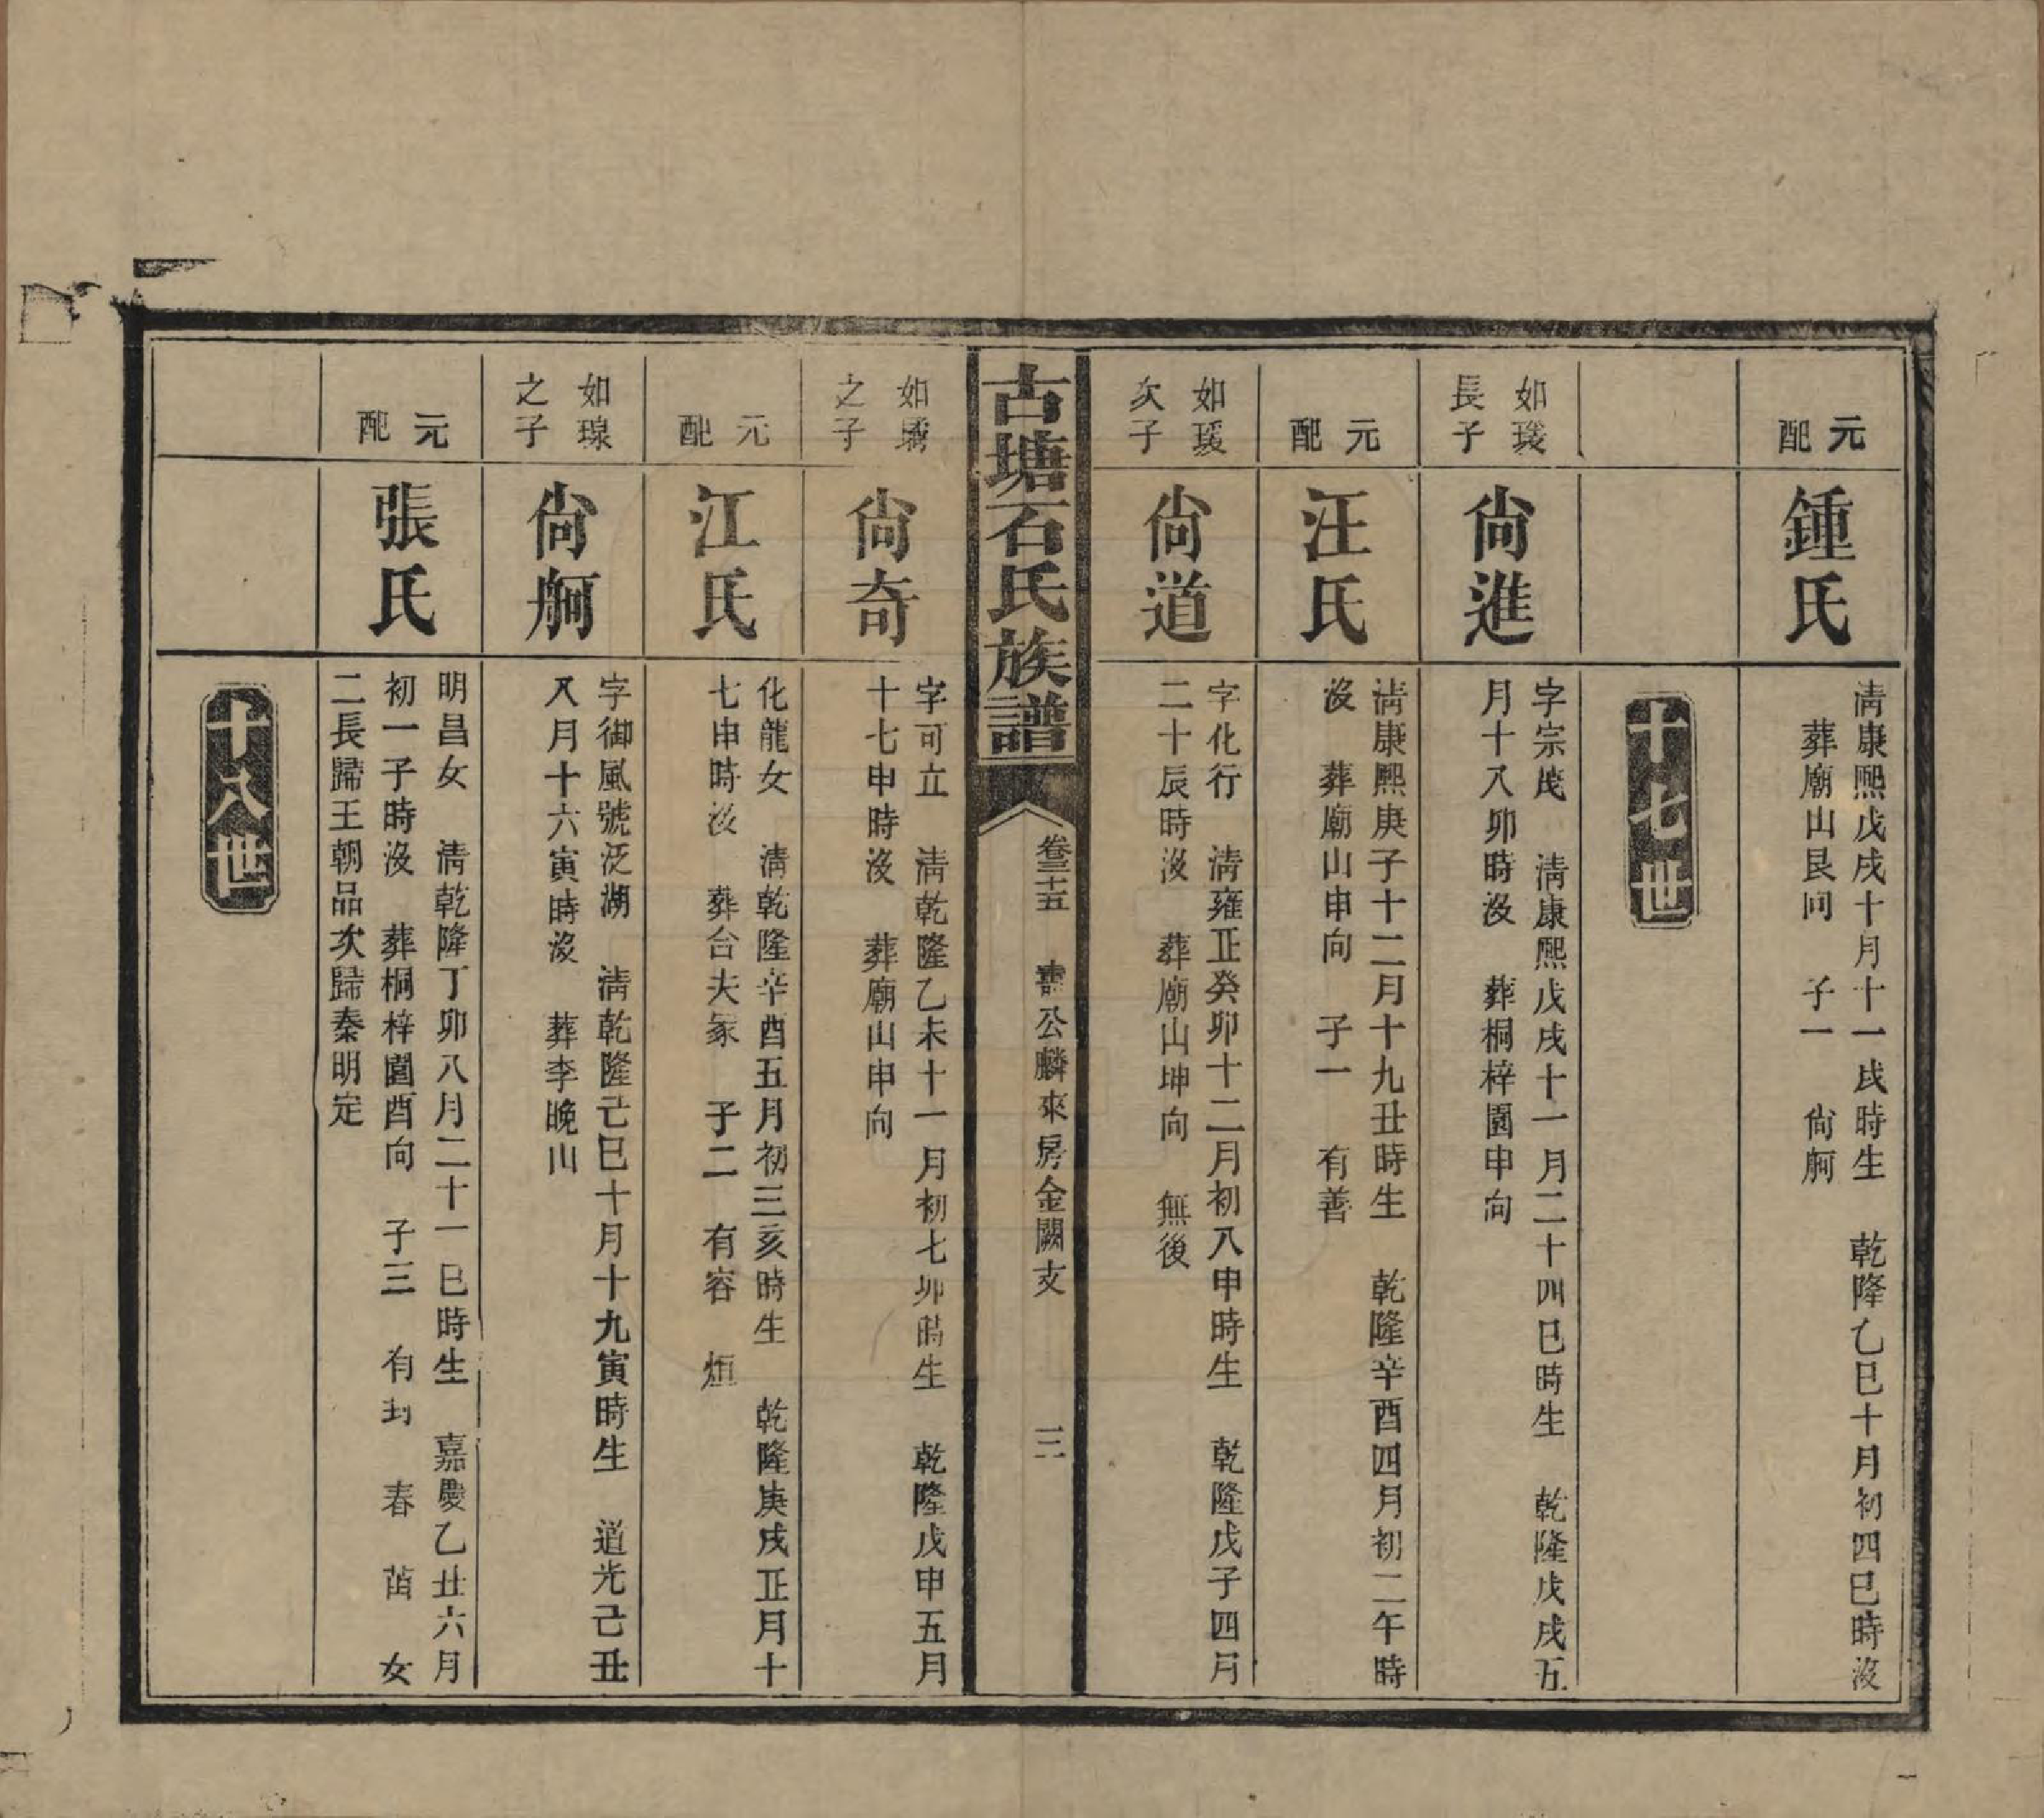 元配
鍾氏
淸康熙戊戌十月十一戌時生　乾隆乙巳十月初四巳時沒
葬廟山艮向　子一　尙舸
十七世
如瑗
長子
尙進
字宗茂　淸康熙戊戌十一月二十四巳時生　乾隆戊戌五
月十八卯時沒　葬桐梓園申向
元配
汪氏
淸康熙庚子十二月十九丑時生　乾隆辛酉四月初二午時
沒　葬廟山申向　子一　有善
如瑗
次子
尙道
字化行　淸雍正癸卯十二月初八申時生　乾隆戊子四月
二十辰時沒　葬廟山坤向　無後
古塘石氏族譜
卷三十五　壽公麟來房金闕支　三
如
之子
尙奇
字可立　淸乾隆乙未十一月初七卯時生　乾隆戊申五月
十七申時沒　葬廟山申向
元配
江氏
化龍女　淸乾隆辛酉五月初三亥時生　乾隆庚戌正月十
七申時沒　葬台夫冢　子二　有容　烜
如瑔
之子
尙舸
字御風號泛湖　淸乾隆己巳十月十九寅時生　道光己丑
八月十六寅時沒　葬李晚山
元配
張氏
明昌女　淸乾隆丁卯八月二十一巳時生　嘉慶乙丑六月
初一子時沒　葬桐梓園酉向　子三　有封　春　苗　女
二長歸王朝品次歸秦明定
十八世